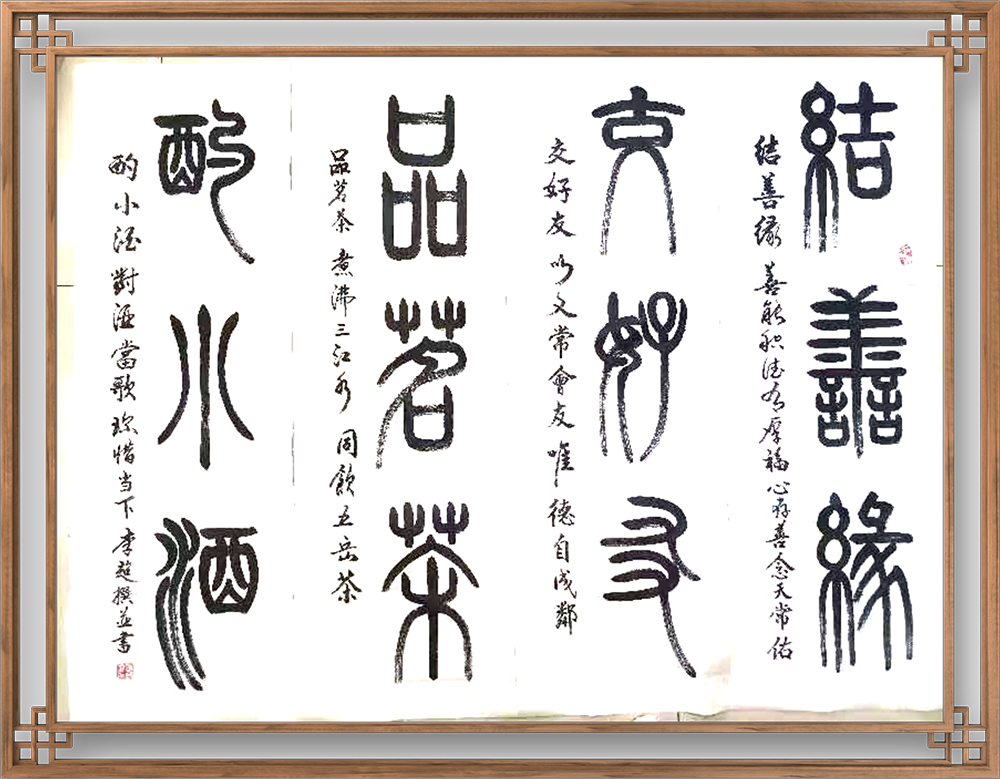 結善緣
结善缘 善能积德厚福心存善念天常佑
交好友
交好友 以文常會友 唯德自成鄰
品茗茶
品茗茶 煮沸三江水 同飲五岳茶
酌小酒
酌小酒 對酒當歌 珍惜当下 李超撰並書